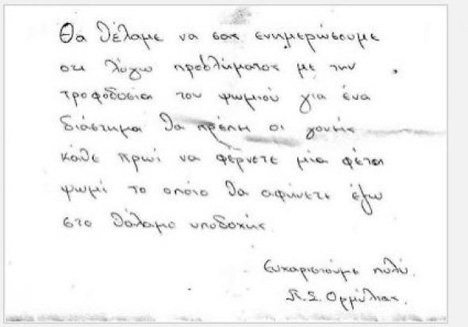 Θα θέλαμε να σας ενημερώσουμε
οτι λόγω προβλήματος με την
τροφοδοσία του ψωμιού για ένα
διάστημα θα πρέπη οι γονής
κάθε πρωί να φέρνετε μία φέτα
ψωμί το οποίο θα αφίνετε έξω
στο θάλαμο υποδοχής
Ευχαριστούμε πολύ.
Π.Σ. Ορμύλιας